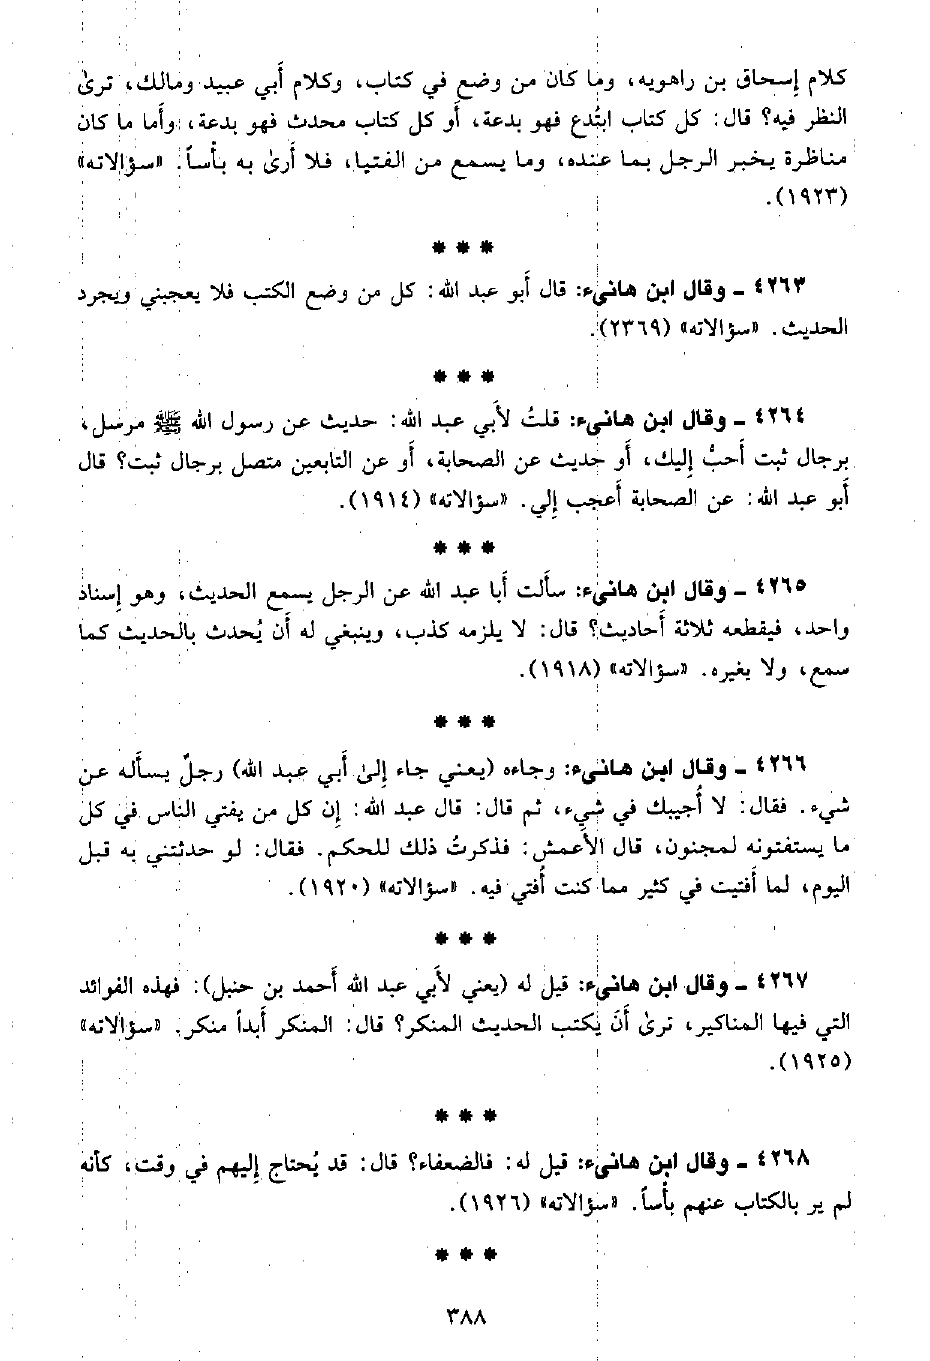 كلام إسحاق بن راهويه، وما كان من وضع في كتاب، وكلام أبي عبيد ومالك، ترىٰ
النظر فيه؟ قال: كل كتاب ابتُدع فهو بدعة، أو كل كتاب محدث فهو بدعة، وأما ما كان
مناظرة يخبر الرجل بما عنده، وما يسمع من الفتيا، فلا أرىٰ به بأساً. «سؤالاته»
(١٩٢٣).
* * *
٤٢٦٣ ـ وقال ابن هانىء: قال أبو عبد الله: كل من وضع الكتب فلا يعجبني ويجرد
الحديث. «سؤالاته» (٢٣٦٩).
* * *
٤٢٦٤ ـ وقال ابن هانىء: قلتُ لأبي عبد الله: حديث عن رسول الله ﷺ مرسل،
برجال ثبت أحبُّ إليك، أو حديث عن الصحابة، أو عن التابعين متصل برجال ثبت؟ قال
أبو عبد الله: عن الصحابة أعجب إلي. «سؤالاته» (١٩١٤).
* * *
٤٢٦٥ ـ وقال ابن هانىء: سألت أبا عبد الله عن الرجل يسمع الحديث، وهو إسناد
واحد، فيقطعه ثلاثة أحاديث؟ قال: لا يلزمه كذب، وينبغي له أن يُحدث بالحديث كما
سمع، ولا يغيره. «سؤالاته» (١٩١٨).
* * *
٤٢٦٦ ـ وقال ابن هانىء: وجاءه (يعني جاء إلىٰ أبي عبد الله) رجلٌ يسأله عن
شيء. فقال: لا أُجيبك في شيء، ثم قال: قال عبد الله: إن كل من يفتي الناس في كل
ما يستفتونه لمجنون، قال الأعمش: فذكرتُ ذلك للحكم. فقال: لو حدثتني به قبل
اليوم، لما أفتيت في كثير مما كنت أُفتي فيه. «سؤالاته» (١٩٢٠).
* * *
٤٢٦٧ ـ وقال ابن هانىء: قيل له (يعني لأبي عبد الله أحمد بن حنبل): فهذه الفوائد
التي فيها المناكير، ترىٰ أن يكتب الحديث المنكر؟ قال: المنكر أبداً منكر. «سؤالاته»
(١٩٢٥).
* * *
٤٢٦٨ ـ وقال ابن هانىء: قيل له: فالضعفاء؟ قال: قد يُحتاج إليهم في وقت، كأنه
لم ير بالكتاب عنهم بأساً. «سؤالاته» (١٩٢٦).
* * *
٣٨٨